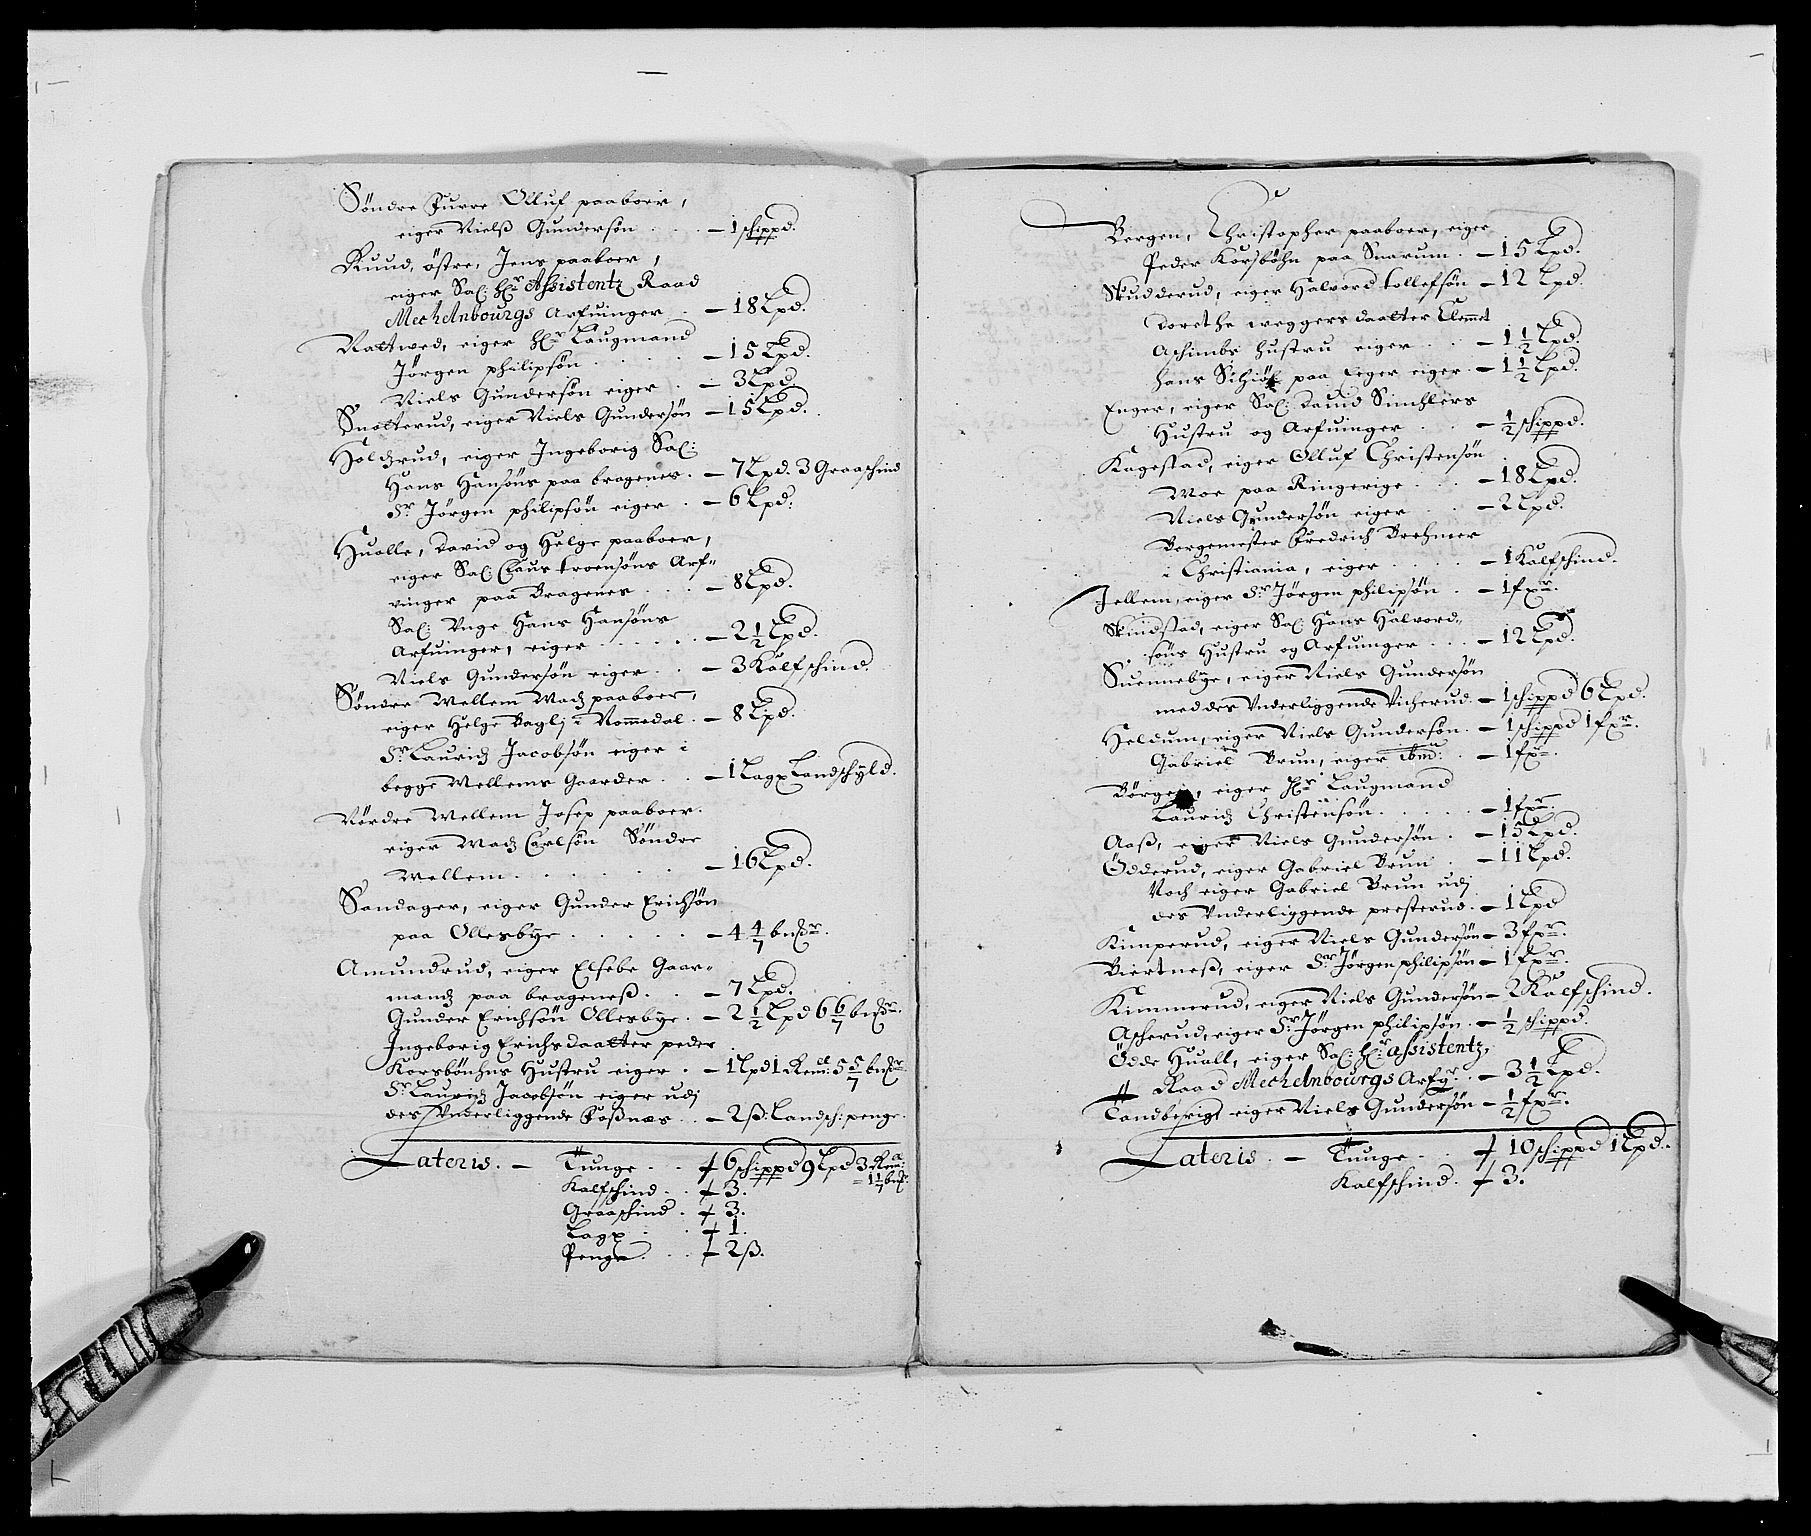 Søndre Furre Olluf paaboer,
eiger Nielß Gundersøn . . . - 1 schippd.
Ruud, østre, Jens paaboer,
eiger Sal: Hr Assistentz Raad
Mechelnbourgs Arfuinger . - 18 Lpd.
Rattwed, eiger Hr Laugmand
Jørgen philipsøn . . . . - 15 Lpd.
Niels Gundersøn eiger . - 3 Lpd
Snotterud, eiger Niels Gundersøn - 15 Lpd.
Holdzrud, eiger Ingeborig Sal:
Hans Hansøns paa bragenes . - 7 Lpd. 3 Graaschind
Sr Jørgen philipsøn eiger . - 6 Lpd:
Hualle, David og Helge paaboer,
eiger Sal: Claus troensøns Arf-
vinger paa Bragenes . . . - 8 Lpd.
Sal: Unge Hans Hansøns
Arfuinger, eiger . . . . . - 2 1/2 Lpd.
Niels Gundersøn eiger . . - 3 Kalfschind
Søndre Wellem Madz paaboer,
eiger Helge Baglj i Nommedal . - 8 Lpd.
Sr Lauridz Jacobsøn eiger i
begge Wellems Gaarder . . - 1 Lagx Landschyld.
Nørdre Wellem Josep paaboer.
eiger Madz Carlsøn Søndre
Wellem . . . . . . - 16 Lpd.
Sandager, eiger Gunder Erichsøn
paa Ollesbye . . . . . - 4 4/7 bndr.
Amundrud, eiger Elsebe Gaar-
mandz paa brageneß . . - 7 Lpd.
Gunder Erichsøn Ollesbye . - 2 1/2 Lpd 6 6/7 bndr.
Ingeborig Erichsdaatter peder
Korsbønhns Hustru eiger . - 1 Lpd 1 Rem: 5 5/7 bndr
Sr Lauridz Jacobsøn eiger udj
des Underliggende Foßnæs . . - 2 ß: Landsch: penge.
Lateris. - Tunge . . 6 schippd 9 Lpd 3 Rem: 1 1/7 bnd
Kalfschind . . 3.
Graaschind . 3.
Lagx . . 1.
Penge . . . 2 ß.
Bergen, Christopher paaboer, eiger
Peder Korsbøhn paa Snarum . - 15 Lpd.
Skudderud, eiger Halvord tollefsøn - 12 Lpd.
Dorethe weggersdaatter Clemmet
Aschimbs hustru eiger . . - 1 1/2 Lpd.
Hans paa eiger . - 1 1/2 Lpd.
Enger, eiger Sal: David Simchlers
Hustru og Arfuinger . . - 1/2 schippd.
Kagestad, eiger Olluf Christensøn
Moe paa Ringerige . . . - 18 Lpd.
Niels Gundersøn eiger . . - 2 Lpd.
Borgemester Fredrich Brehmer
i Christiania, eiger . . . . - 1 Kalfschind.
Jellem, eiger Sr Jørgen philipsøn . - 1 fxr.
Skindstad, eiger Sal: Hans Halvord-
søns Hustru og Arfuinger . . . - 12 Lpd.
Suennebye, eiger Niels Gundersøn
med des Underliggende Vicherud . - 1 schippd 6 Lpd.
Heldum, eiger Niels Gundersøn . - 1 schippd 1 fxr.
Gabriel Brun, eiger ibm: . - 1 fxr.
Børgen, eiger Hr Laugmand
Lauridz Christensøn . . . . . - 1 fxr.
Aaß, eiger Niels Gundersøn . - 15 Lpd.
Ødderud, eiger Gabriel Brun . - 11 Lpd.
Noch eiger Gabriel Brun udj
des Underliggende presterud . - 1 Lpd
Kimperud, eiger Niels Gundersøn - 3 fxr.
Viertneß, eiger Sr Jørgen philipsøn - 1 fxr.
Kimmerud, eiger Niels Gundersøn - 2 Kalfschind.
Ascherud, eiger Sr Jørgen philipsøn . - 1/2 schippd.
Ødde Huall, eiger Sal: Hr: Assistentz,
Raad Mechelnbourgs Arfgr . - 3 1/2 Lpd.
Tandberig, eiger Niels Gundersøn - 1/2 fxr.
Lateris . - Tunge . . 10 schippd 1 Lpd.
Kalfschind . 3.